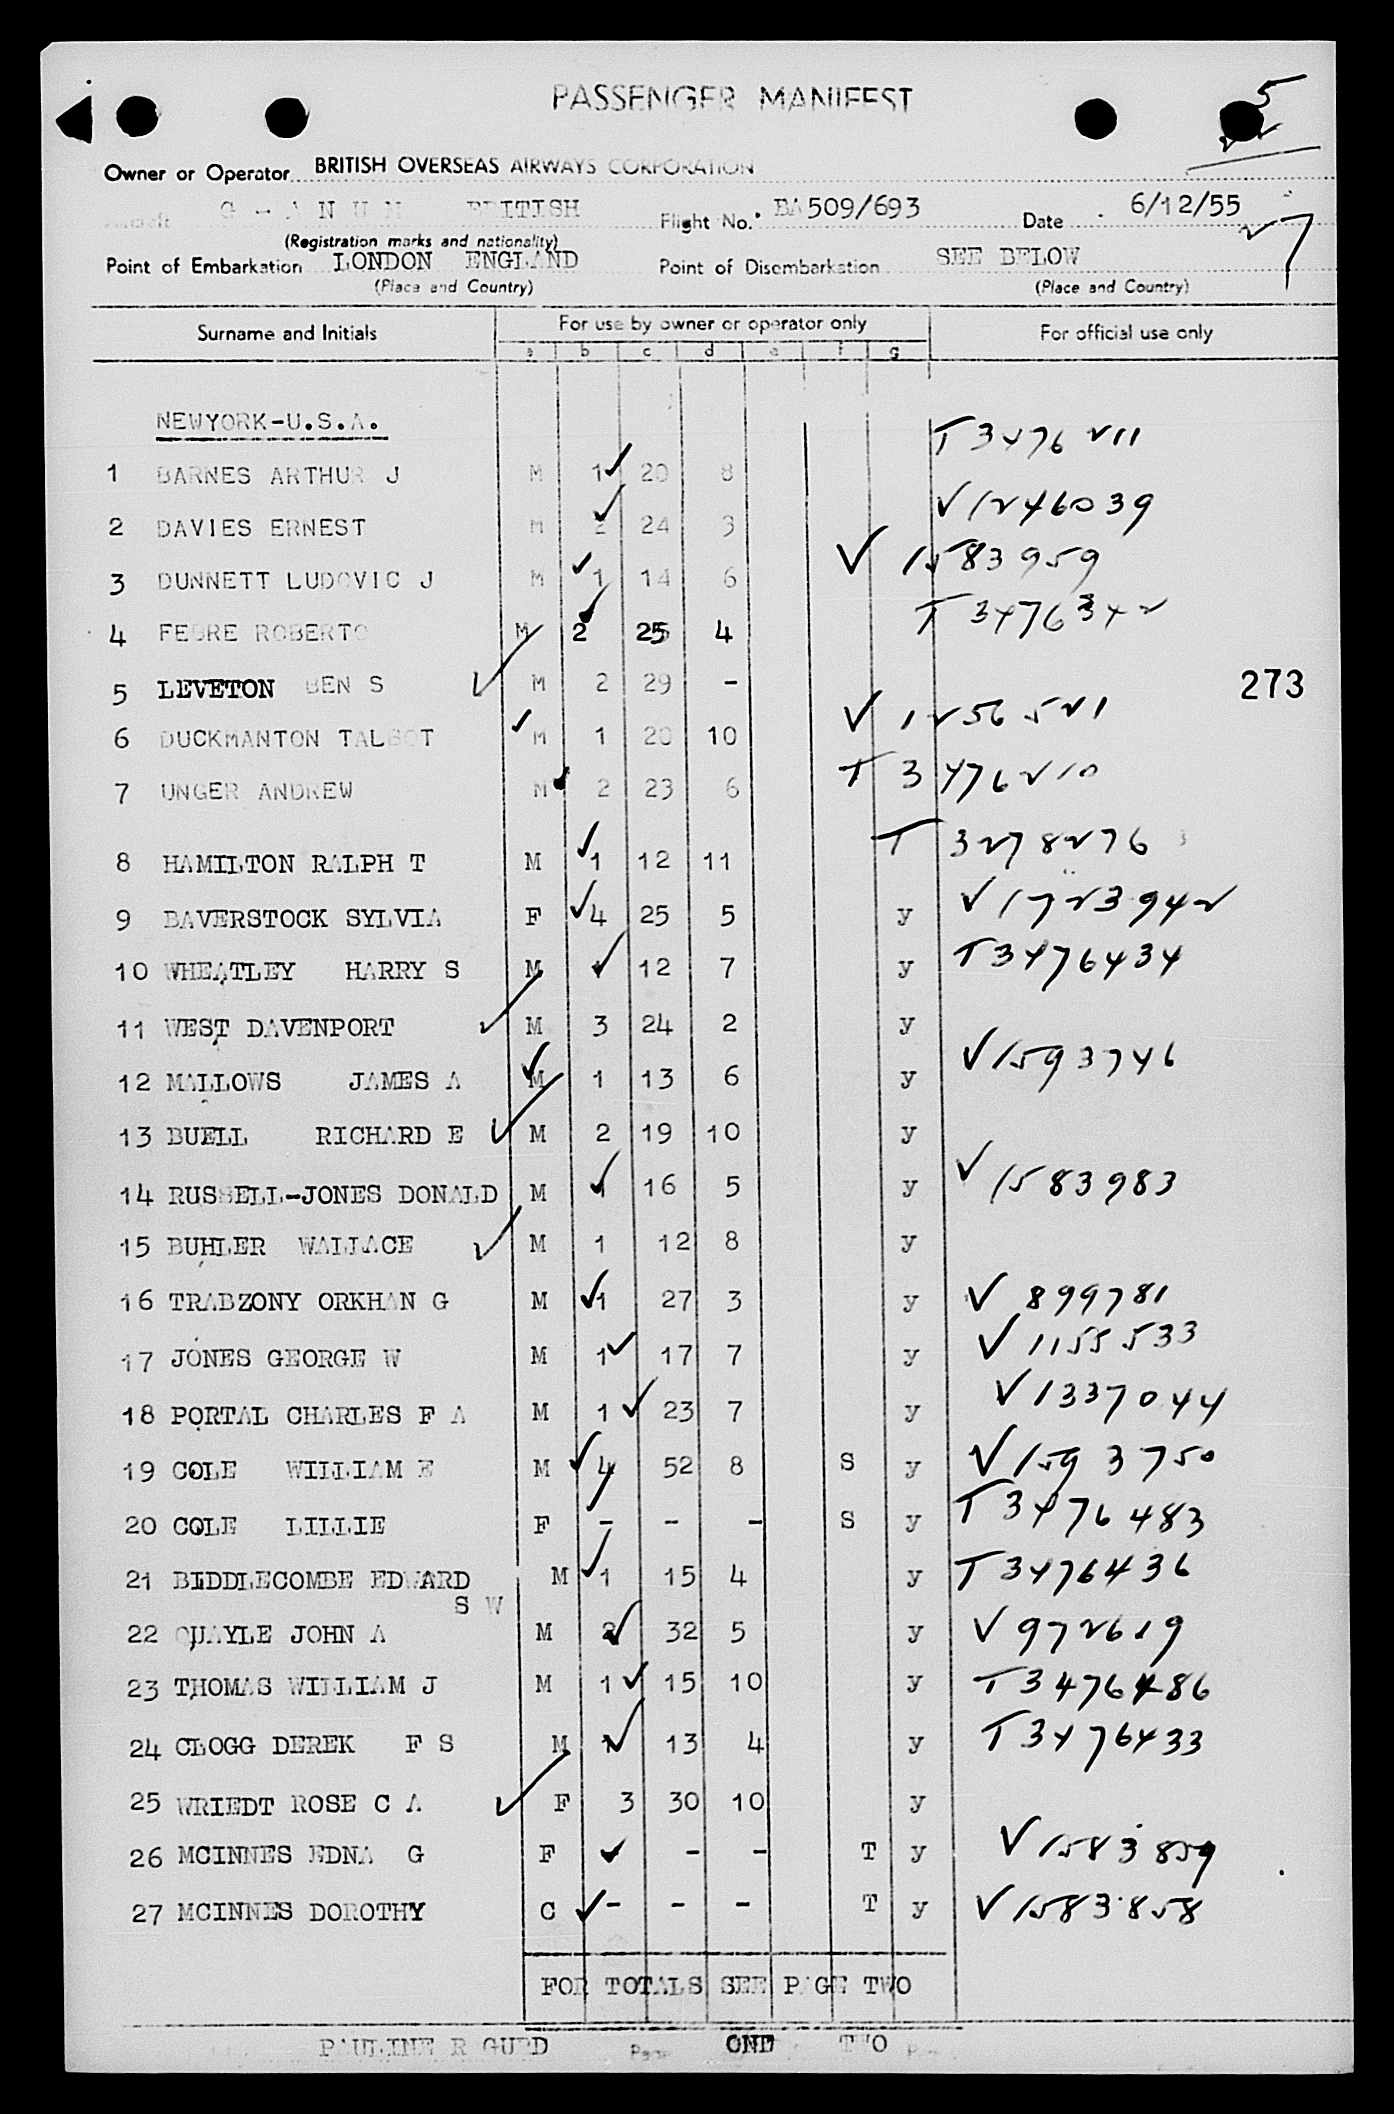 PASSENGER MANIFEST
5
Owner or Operator BRITISH OVERSEAS AIRWAYS CORPORATION
BRITISH Flight No. BA509/693 Date 6/12/55
(Registration marks and nationality)
7
Point of Embarkation LONDON ENGLAND Point of Disembarkation SEE BELOW
(Place and Country) (Place and Country)
Surname and Initials For use by owner or operator only For official use only
a b c d e f g
NEWYORK-U.S.A.
T 3476211
1 BARNES ARTHUR J M 1 20 8
V 1246039
2 DAVIES ERNEST M 2 24 3
V 1583959
3 DUNNETT LUDOVIC J M 1 14 6
T 3476342
4 FEBRE ROBERTO M 2 25 4
5 LEVETON BEN S M 2 29 -
273
V 1256521
6 DUCKMANTON TALBOT M 1 20 10
T 3476210
7 UNGER ANDREW M 2 23 6
T 3278276
8 HAMILTON RALPH T M 1 12 11
V 1723942
9 BAVERSTOCK SYLVIA F 4 25 5 y
T 3476434
10 WHEATLEY HARRY S M 12 7 y
11 WEST DAVENPORT M 3 24 2 y
V 1593746
12 MALLOWS JAMES A M 1 13 6 y
13 BUELL RICHARD E M 2 19 10 y
14 RUSSELL-JONES DONALD M 1 16 5 y V 1583983
15 BUHLER WALLACE M 1 12 8 y
16 TRABZONY ORKHAN G M 1 27 3 y V 899781
17 JONES GEORGE W M 1 17 7 y V 1155533
18 PORTAL CHARLES F A M 1 23 7 y V 1337044
19 COLE WILLIAM E M 4 52 8 S y V 1593750
20 COLE LILLIE F - - - S y T 3476483
21 BIDDLECOMBE EDWARD M 1 15 4 y T 3476436
S W
22 QUAYLE JOHN A M 2 32 5 y V 972619
23 THOMAS WILLIAM J M 1 15 10 y T 3476486
24 CLOGG DEREK F S M 1 13 4 y T 3476433
25 WRIEDT ROSE C A F 3 30 10 y
26 MCINNES EDNA G F - - T y V 1583859
27 MCINNES DOROTHY C - - - T y V 1583858
FOR TOTALS SEE PAGE TWO
PAULINE R Page ONE TWO